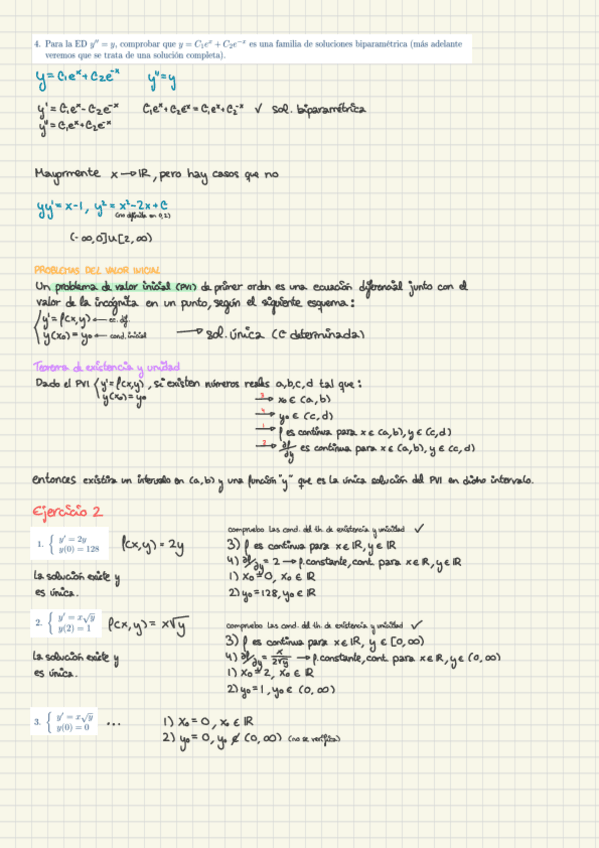 4. Para la ED y'' = y, comprobar que y = C₁eˣ + C₂e⁻ˣ es una familia de soluciones biparamétrica (más adelante
veremos que se trata de una solución completa).
y = C₁eˣ + C₂e⁻ˣ y'' = y
y' = C₁eˣ - C₂e⁻ˣ C₁eˣ + C₂eˣ = C₁eˣ + C₂⁻ˣ ✓ sol. biparamétrica
y'' = C₁eˣ + C₂e⁻ˣ
Mayormente x → ℝ, pero hay casos que no
yy' = x-1, y² = x² - 2x + C
(no definida en 0,2)
(-∞,0] ∪ [2,∞)
PROBLEMAS DEL VALOR INICIAL
Un problema de valor inicial (PVI) de primer orden es una ecuación diferencial junto con el
valor de la incógnita en un punto, según el siguiente esquema:
{ y' = f(x,y) ← ec. dif.
y(x₀) = y₀ ← cond. inicial → sol. única (C determinada)
Teorema de existencia y unidad
Dado el PVI { y' = f(x,y) , si existen números reales a,b,c,d tal que:
y(x₀) = y₀ 3→ x₀ ∈ (a,b)
4→ y₀ ∈ (c,d)
1→ f es continua para x ∈ (a,b), y ∈ (c,d)
2→ ∂f/∂y es continua para x ∈ (a,b), y ∈ (c,d)
entonces existirá un intervalo en (a,b) y una función "y" que es la única solución del PVI en dicho intervalo.
Ejercicio 2
compruebo las cond. del th. de existencia y unicidad ✓
1. { y' = 2y f(x,y) = 2y 3) f es continua para x ∈ ℝ, y ∈ ℝ
y(0) = 128 4) ∂f/∂y = 2 → f. constante, cont. para x ∈ ℝ, y ∈ ℝ
La solución existe y 1) x₀ = 0, x₀ ∈ ℝ
es única. 2) y₀ = 128, y₀ ∈ ℝ
2. { y' = x√y f(x,y) = x√y compruebo las cond. del th. de existencia y unicidad ✓
y(2) = 1 3) f es continua para x ∈ ℝ, y ∈ [0,∞)
La solución existe y 4) ∂f/∂y = x/2√y → f. constante, cont. para x ∈ ℝ, y ∈ (0,∞)
es única. 1) x₀ = 2, x₀ ∈ ℝ
2) y₀ = 1, y₀ ∈ (0,∞)
3. { y' = x√y ... 1) x₀ = 0, x₀ ∈ ℝ
y(0) = 0 2) y₀ = 0, y₀ ∉ (0,∞) (no se verifica)